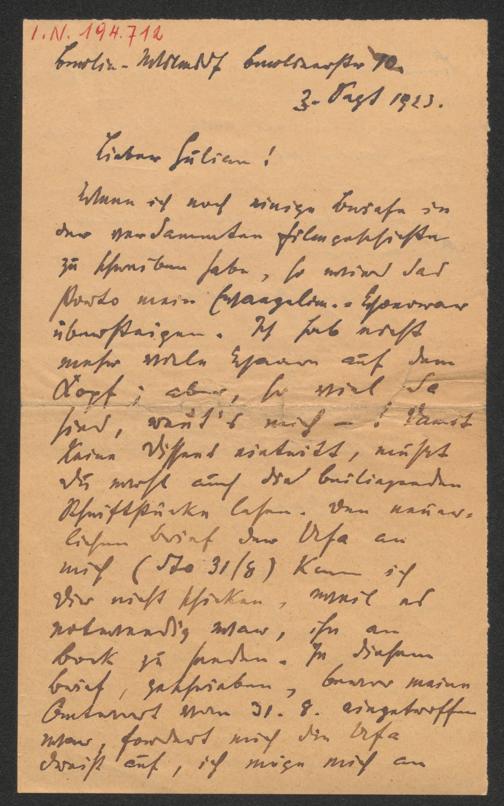 I.N. 194.712
Berlin - Wilmersdorf
3. Sept 1923.
Lieber Julian!
Wenn ich noch einige Briefe in
der verdammten Filmgeschichte
zu schreiben habe, so wird das
Porto mein Evangelim.-Honorar
übersteigen. Ich hab nicht
mehr viele Haare auf dem
Kopf; aber, so viel da
sind, reut's mich - ! Damit
keine Differenz eintritt, mußt
Du wohl auch die beiliegenden
Schriftstücke lesen. Den neuer-
lichen Brief der Ufa an
mich (dto 31/8) kann ich
Dir nicht schicken, weil es
notwendig war, ihn an
Beck zu senden. In diesem
Brief, geschrieben, bevor meine
Antwort vom 31. 8. eingetroffen
war, fordert mich die Ufa
dreist auf, ich möge mich an